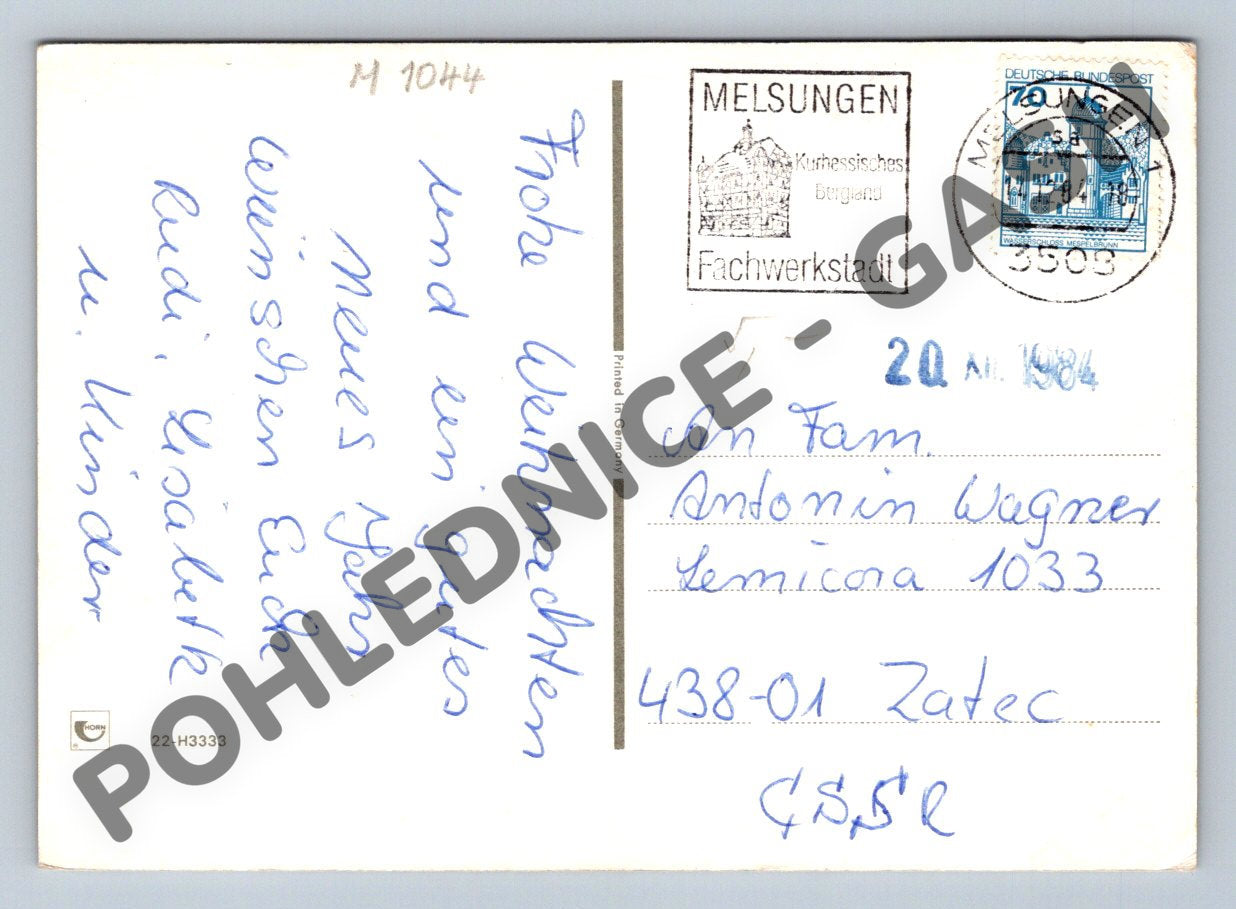 M 1044
Frohe Weihnachten
und ein gutes
Neues Jahr
wünschen Euch
Rudi, Lisabeth
u. Kinder
HORN
22-H3333
Printed in Germany
MELSUNGEN
Kurhessisches
Bergland
Fachwerkstadt
DEUTSCHE BUNDESPOST
70
WASSERSCHLOSS MESPELBRUNN
MELSUNGEN 1
sa
3508
20 XII. 1984
An Fam.
Antonin Wagner
Lemicova 1033
438-01 Zatec
ČSSR
POHLEDNICE - GASTI